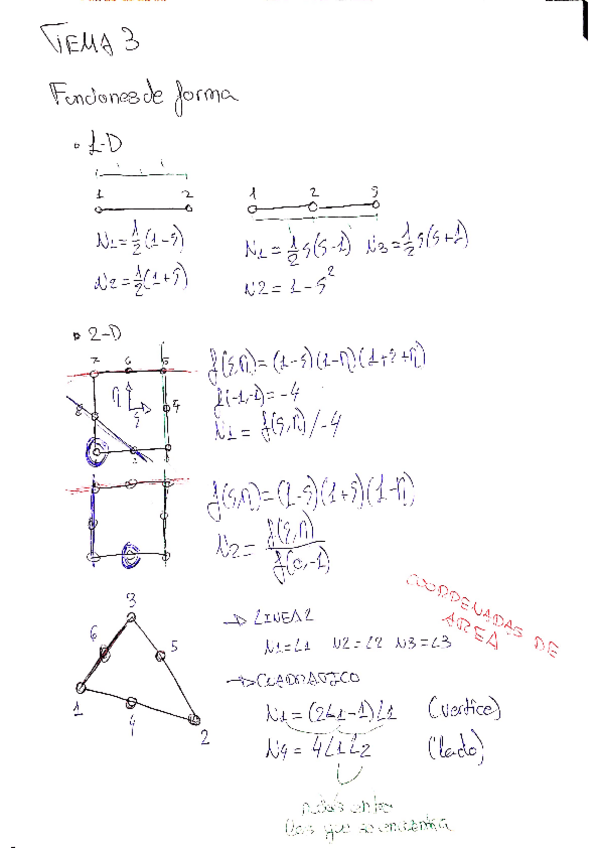 TEMA 3
Funciones de forma
• 1-D
1 2
1 2 3
N1 = 1/2 (1-ξ)
N2 = 1/2 (1+ξ)
N1 = 1/2 ξ(ξ-1) N3 = 1/2 ξ(ξ+1)
N2 = 1-ξ²
• 2-D
7 6 5
8 η ξ 4
f(ξ,η) = (1-ξ)(1-η)(1+ξ+η)
f(-1,-1) = -4
N1 = f(ξ,η)/-4
f(ξ,η) = (1-ξ)(1+ξ)(1-η)
N2 = f(ξ,η)/f(0,-1)
COORDENADAS DE
AREA
3
6 5
1 4 2
→ LINEAL
N1=L1 N2=L2 N3=L3
→ CUADRATICO
N1 = (2L1-1)L1 (vertice)
N4 = 4L1L2 (lado)
nodos entre
los que se encuentra